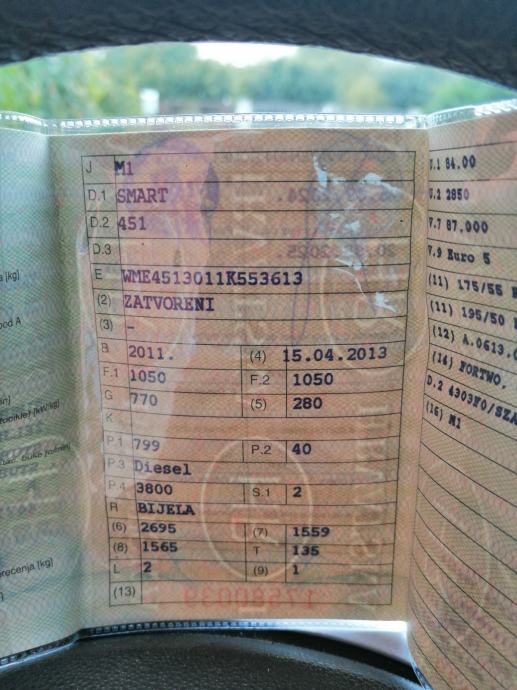 a [kg]
pod A
J M1
D.1 SMART
D.2 451
D.3
E WME4513011K553613
(2) ZATVORENI
(3) -
B 2011. (4) 15.04.2013
F.1 1050 F.2 1050
G 770 (5) 280
K
P.1 799 P.2 40
P.3 Diesel
P.4 3800 S.1 2
R BIJELA
(6) 2695 (7) 1559
(8) 1565 T 135
L 2 (9) 1
(13)
17580039
V.1 84.00
U.2 2850
V.7 87.000
V.9 Euro 5
(11) 175/55 R
(11) 195/50
(12) A.0613.
(14) FORTWO,
D.2 4303F0/SZA
(16) M1